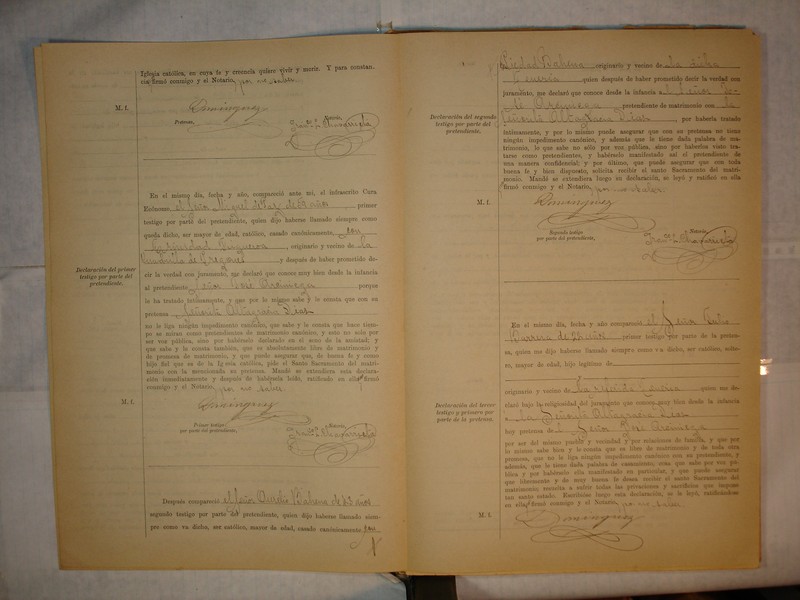 Iglesia católica, en cuya fe y creencia quiere vivir y morir. Y para constan.
cia firmó conmigo y el Notario, por no saber.
M. f.
Domínguez
Párroco.
Notario,
En el mismo día, fecha y año, compareció ante mí, el infrascrito Cura
Enfermo, el Señor Miguel Díaz de 59 años primer
testigo por parte del pretendiente, quien dijo haberse llamado siempre como
queda dicho, ser mayor de edad, católico, casado canónicamente, con
Soledad Figueroa, originario y vecino de la
Cuadrilla de y después de haber prometido de-
Declaración del primer
testigo por parte del
pretendiente.
cir la verdad con juramento, me declaró que conoce muy bien desde la infancia
al pretendiente Señor José Arizmega porque
le ha tratado íntimamente, y que por lo mismo sabe y le consta que con su
pretensa Señorita Altagracia Leal
no le liga ningún impedimento canónico, que sabe y le consta que hace tiem-
po se miran como pretendientes de matrimonio canónico, y esto no solo por
ser voz pública, sino por habérselo declarado en el seno de la amistad; y
que sabe y le consta también, que es absolutamente libre de matrimonio y
de promesa de matrimonio, y que puede asegurar que, de buena fe y como
hijo fiel que es de la Iglesia católica, pide el Santo Sacramento del matri-
monio con la mencionada su pretensa. Mandé se extendiera esta declara-
ción inmediatamente y después de habérsela leído, ratificado en ella firmó
conmigo y el Notario. por no saber.
M. f.
Domínguez
Primer testigo
por parte del pretendiente,
Notario,
Después compareció el Señor Aurelio Bahena de 23 años
segundo testigo por parte del pretendiente, quien dijo haberse llamado siem-
pre como va dicho, ser católico, mayor de edad, casado canónicamente con
Piedad Bahena originario y vecino de la dicha
quien después de haber prometido decir la verdad con
juramento, me declaró que conoce desde la infancia al Señor Jo-
sé Arizmega pretendiente de matrimonio con la
Declaración del segundo
testigo por parte del
pretendiente.
Señorita Altagracia Leal por haberla tratado
íntimamente, y por lo mismo puede asegurar que con su pretensa no tiene
ningún impedimento canónico, y además que le tiene dada palabra de ma-
trimonio, lo que sabe no sólo por voz pública, sino por haberlos visto tra-
tarse como pretendientes, y habérselo manifestado así el pretendiente de
una manera confidencial; y por último, que puede asegurar que con toda
buena fe y bien dispuesto, solicita recibir el santo Sacramento del matri-
monio. Mandé se extendiera luego su declaración, se leyó y ratificó en ella
firmó conmigo y el Notario, por no saber.
M. f.
Domínguez
Segundo testigo
por parte del pretendiente,
Notario,
En el mismo día, fecha y año compareció el Señor
Barrera de primer testigo por parte de la preten-
sa, quien me dijo haberse llamado siempre como va dicho, ser católico, solte-
ro, mayor de edad, hijo legítimo de
originario y vecino de la referida quien me de-
claró bajo la religiosidad del juramento que conoce muy bien desde la infancia
Declaración del tercer
testigo y primero por
parte de la pretensa.
a la Señorita Altagracia Leal
hoy pretensa del Señor José Arizmega
por ser del mismo pueblo y vecindad y por relaciones de familia, y que por
lo mismo sabe bien y le consta que es libre de matrimonio y de toda otra
promesa, que no le liga ningún impedimento canónico con su pretendiente, y
además, que le tiene dada palabra de casamiento, cosa que sabe por voz pú-
blica y por habérselo ella manifestado en particular, y que puede asegurar
que libremente y de muy buena fe desea recibir el santo Sacramento del
matrimonio; resuelta a sufrir todas las privaciones y sacrificios que impone
tan santo estado. Escribióse luego esta declaración, se le leyó, ratificándose
en ella firmó conmigo y el Notario, por no saber.
M. f.
Domínguez